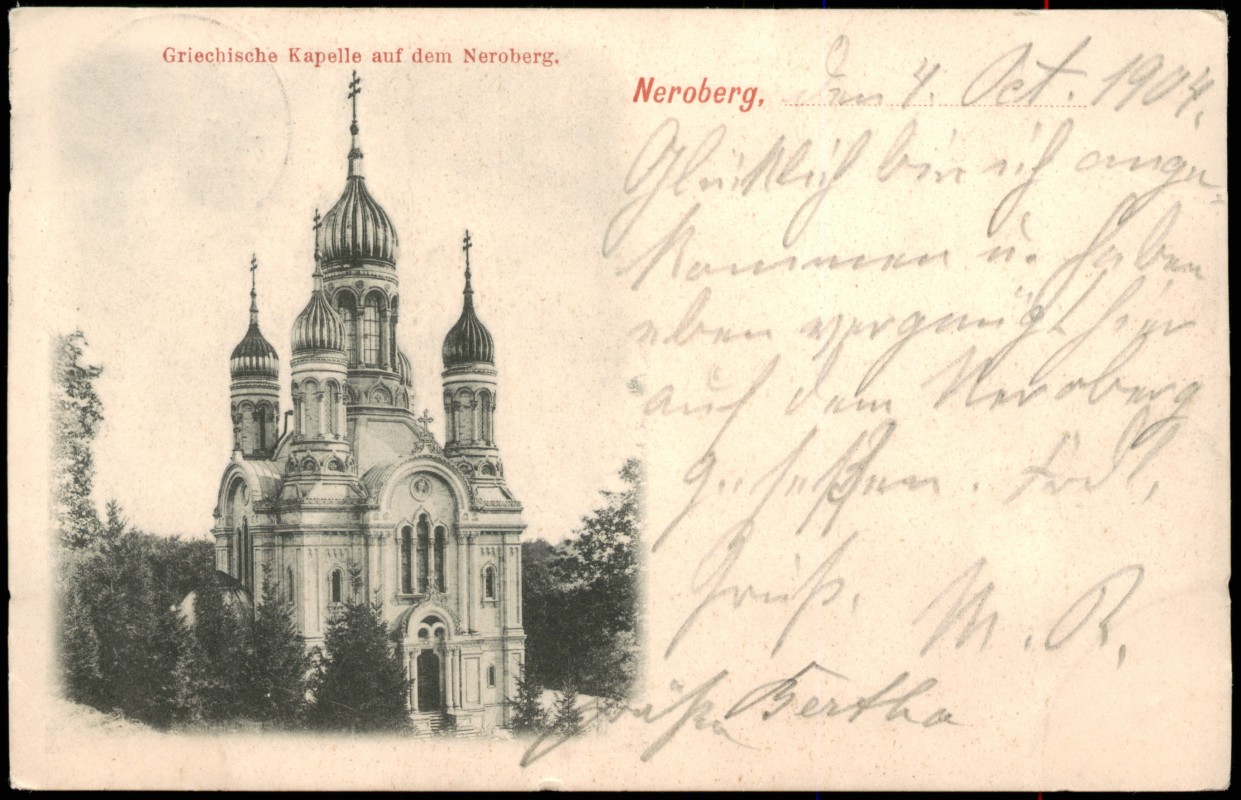 Griechische Kapelle auf dem Neroberg.
Neroberg, den 4. Oct. 1904.
Glücklich bin ich ange-
kommen u. haben
eben vergnügt hier
auf dem Neroberg
gesessen.
Gruß. M. R.
Grüße Bertha